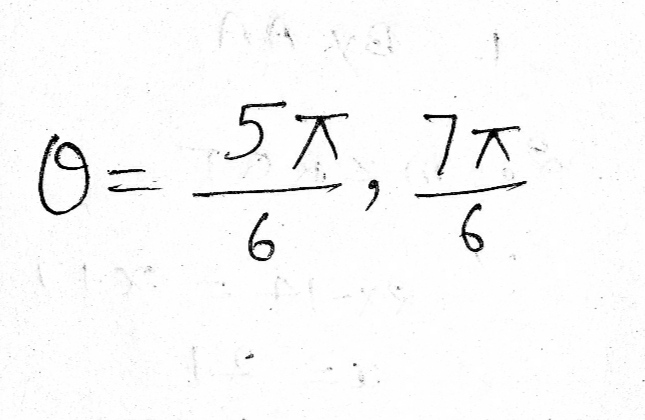 θ = 5π/6, 7π/6